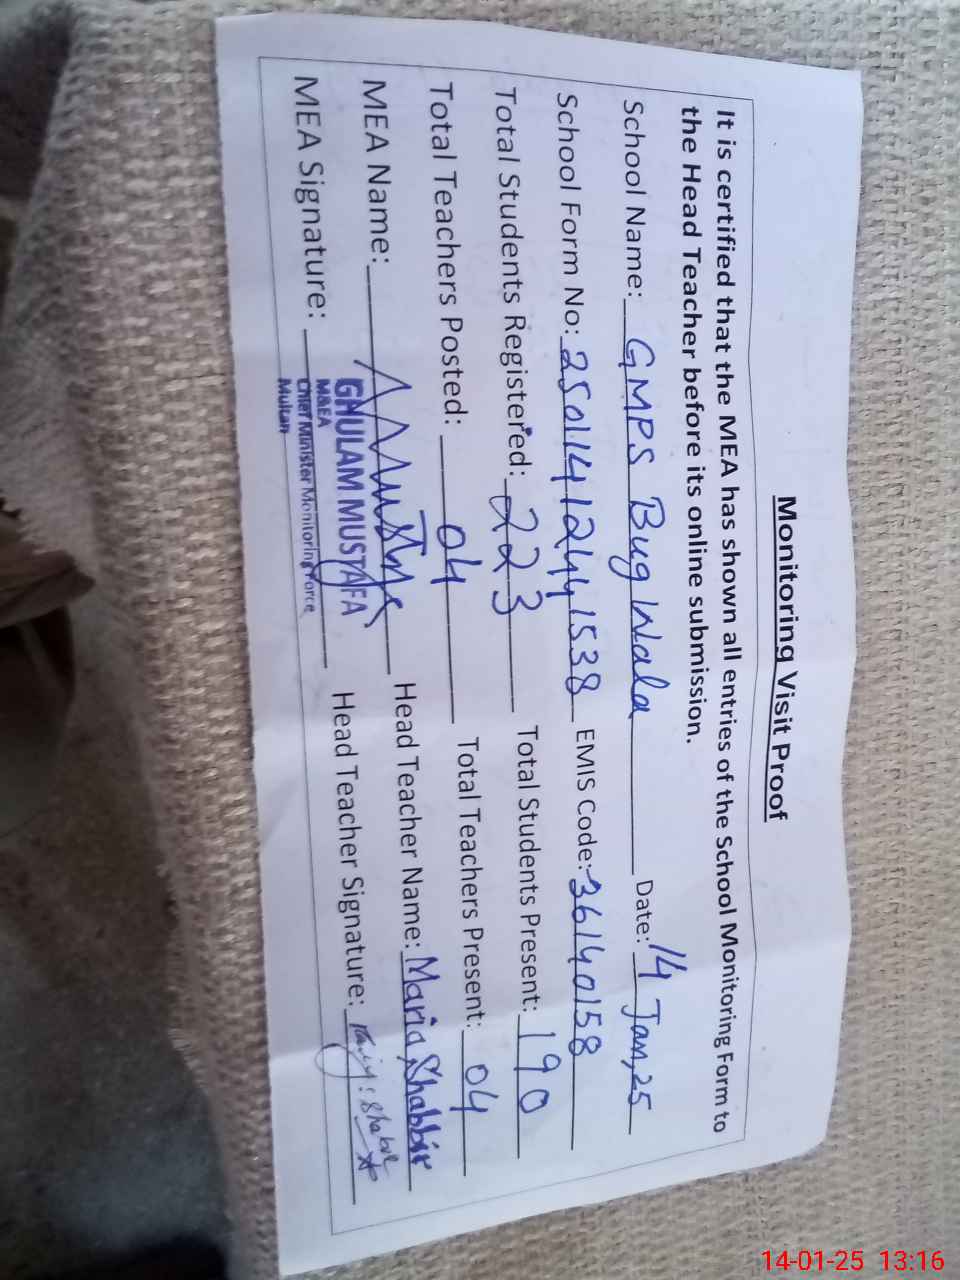 Monitoring Visit Proof
It is certified that the MEA has shown all entries of the School Monitoring Form to
the Head Teacher before its online submission.
School Name: GMPS Bug Wala Date: 14 Jan, 25
School Form No: 25011412441538 EMIS Code: 36140158
Total Students Registered: 223 Total Students Present: 190
Total Teachers Posted: 04 Total Teachers Present: 04
MEA Name: Head Teacher Name: Maria Shabbir
MEA Signature: Head Teacher Signature:
GHULAM MUSTAFA
M&EA
Chief Minister Monitoring Force
Multan
14-01-25 13:16